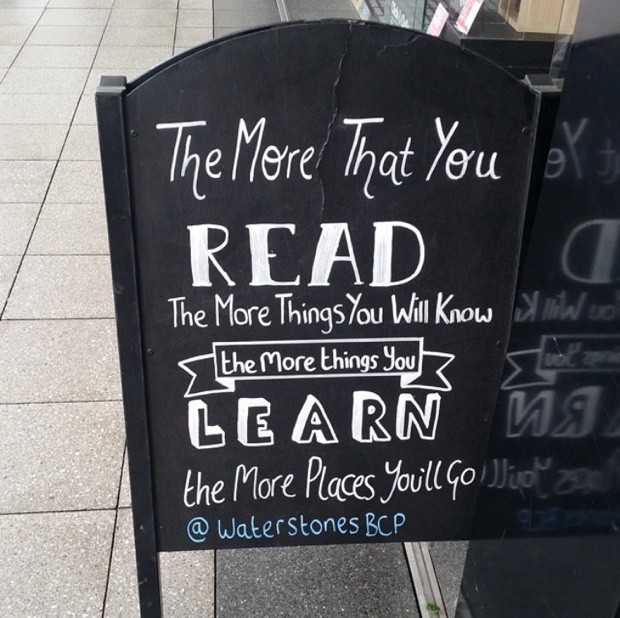 The More That You
READ
The More Things You Will Know
the More things You
LEARN
the More Places You'll Go
@ Waterstones BCP